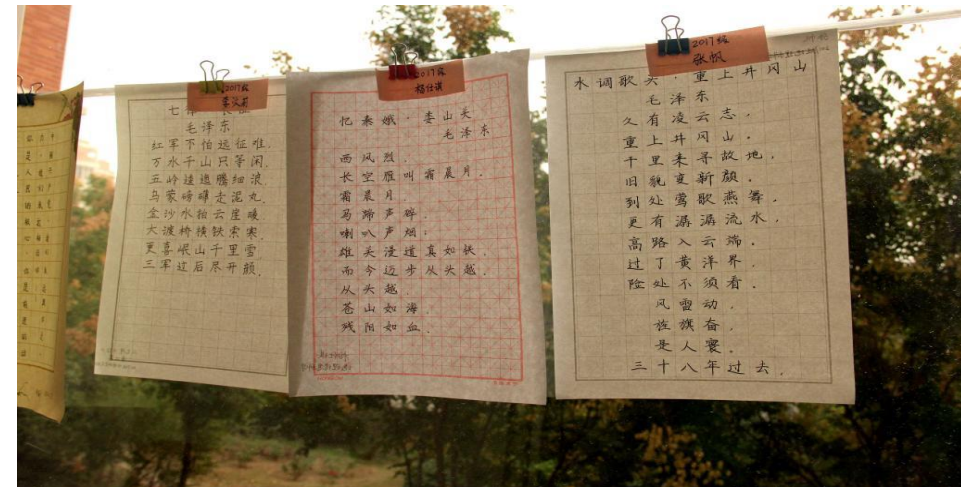 2017级
七
毛泽东
红军不怕远征难
万水千山只等闲
五岭逶迤腾细浪
乌蒙磅礴走泥丸
金沙水拍云崖暖
大渡桥横铁索寒
更喜岷山千里雪
三军过后尽开颜
2017级
杨仕祺
忆秦娥·娄山关
毛泽东
西风烈,
长空雁叫霜晨月.
霜晨月
马蹄声碎,
喇叭声烟:
雄关漫道真如铁,
而今迈步从头越.
从头越,
苍山如海,
残阳如血.
2017级
张帆
水调歌头·重上井冈山
毛泽东
久有凌云志,
重上井冈山.
千里来寻故地,
旧貌变新颜.
到处莺歌燕舞,
更有潺潺流水,
高路入云端.
过了黄洋界,
险处不须看.
风雷动,
旌旗奋,
是人寰.
三十八年过去,